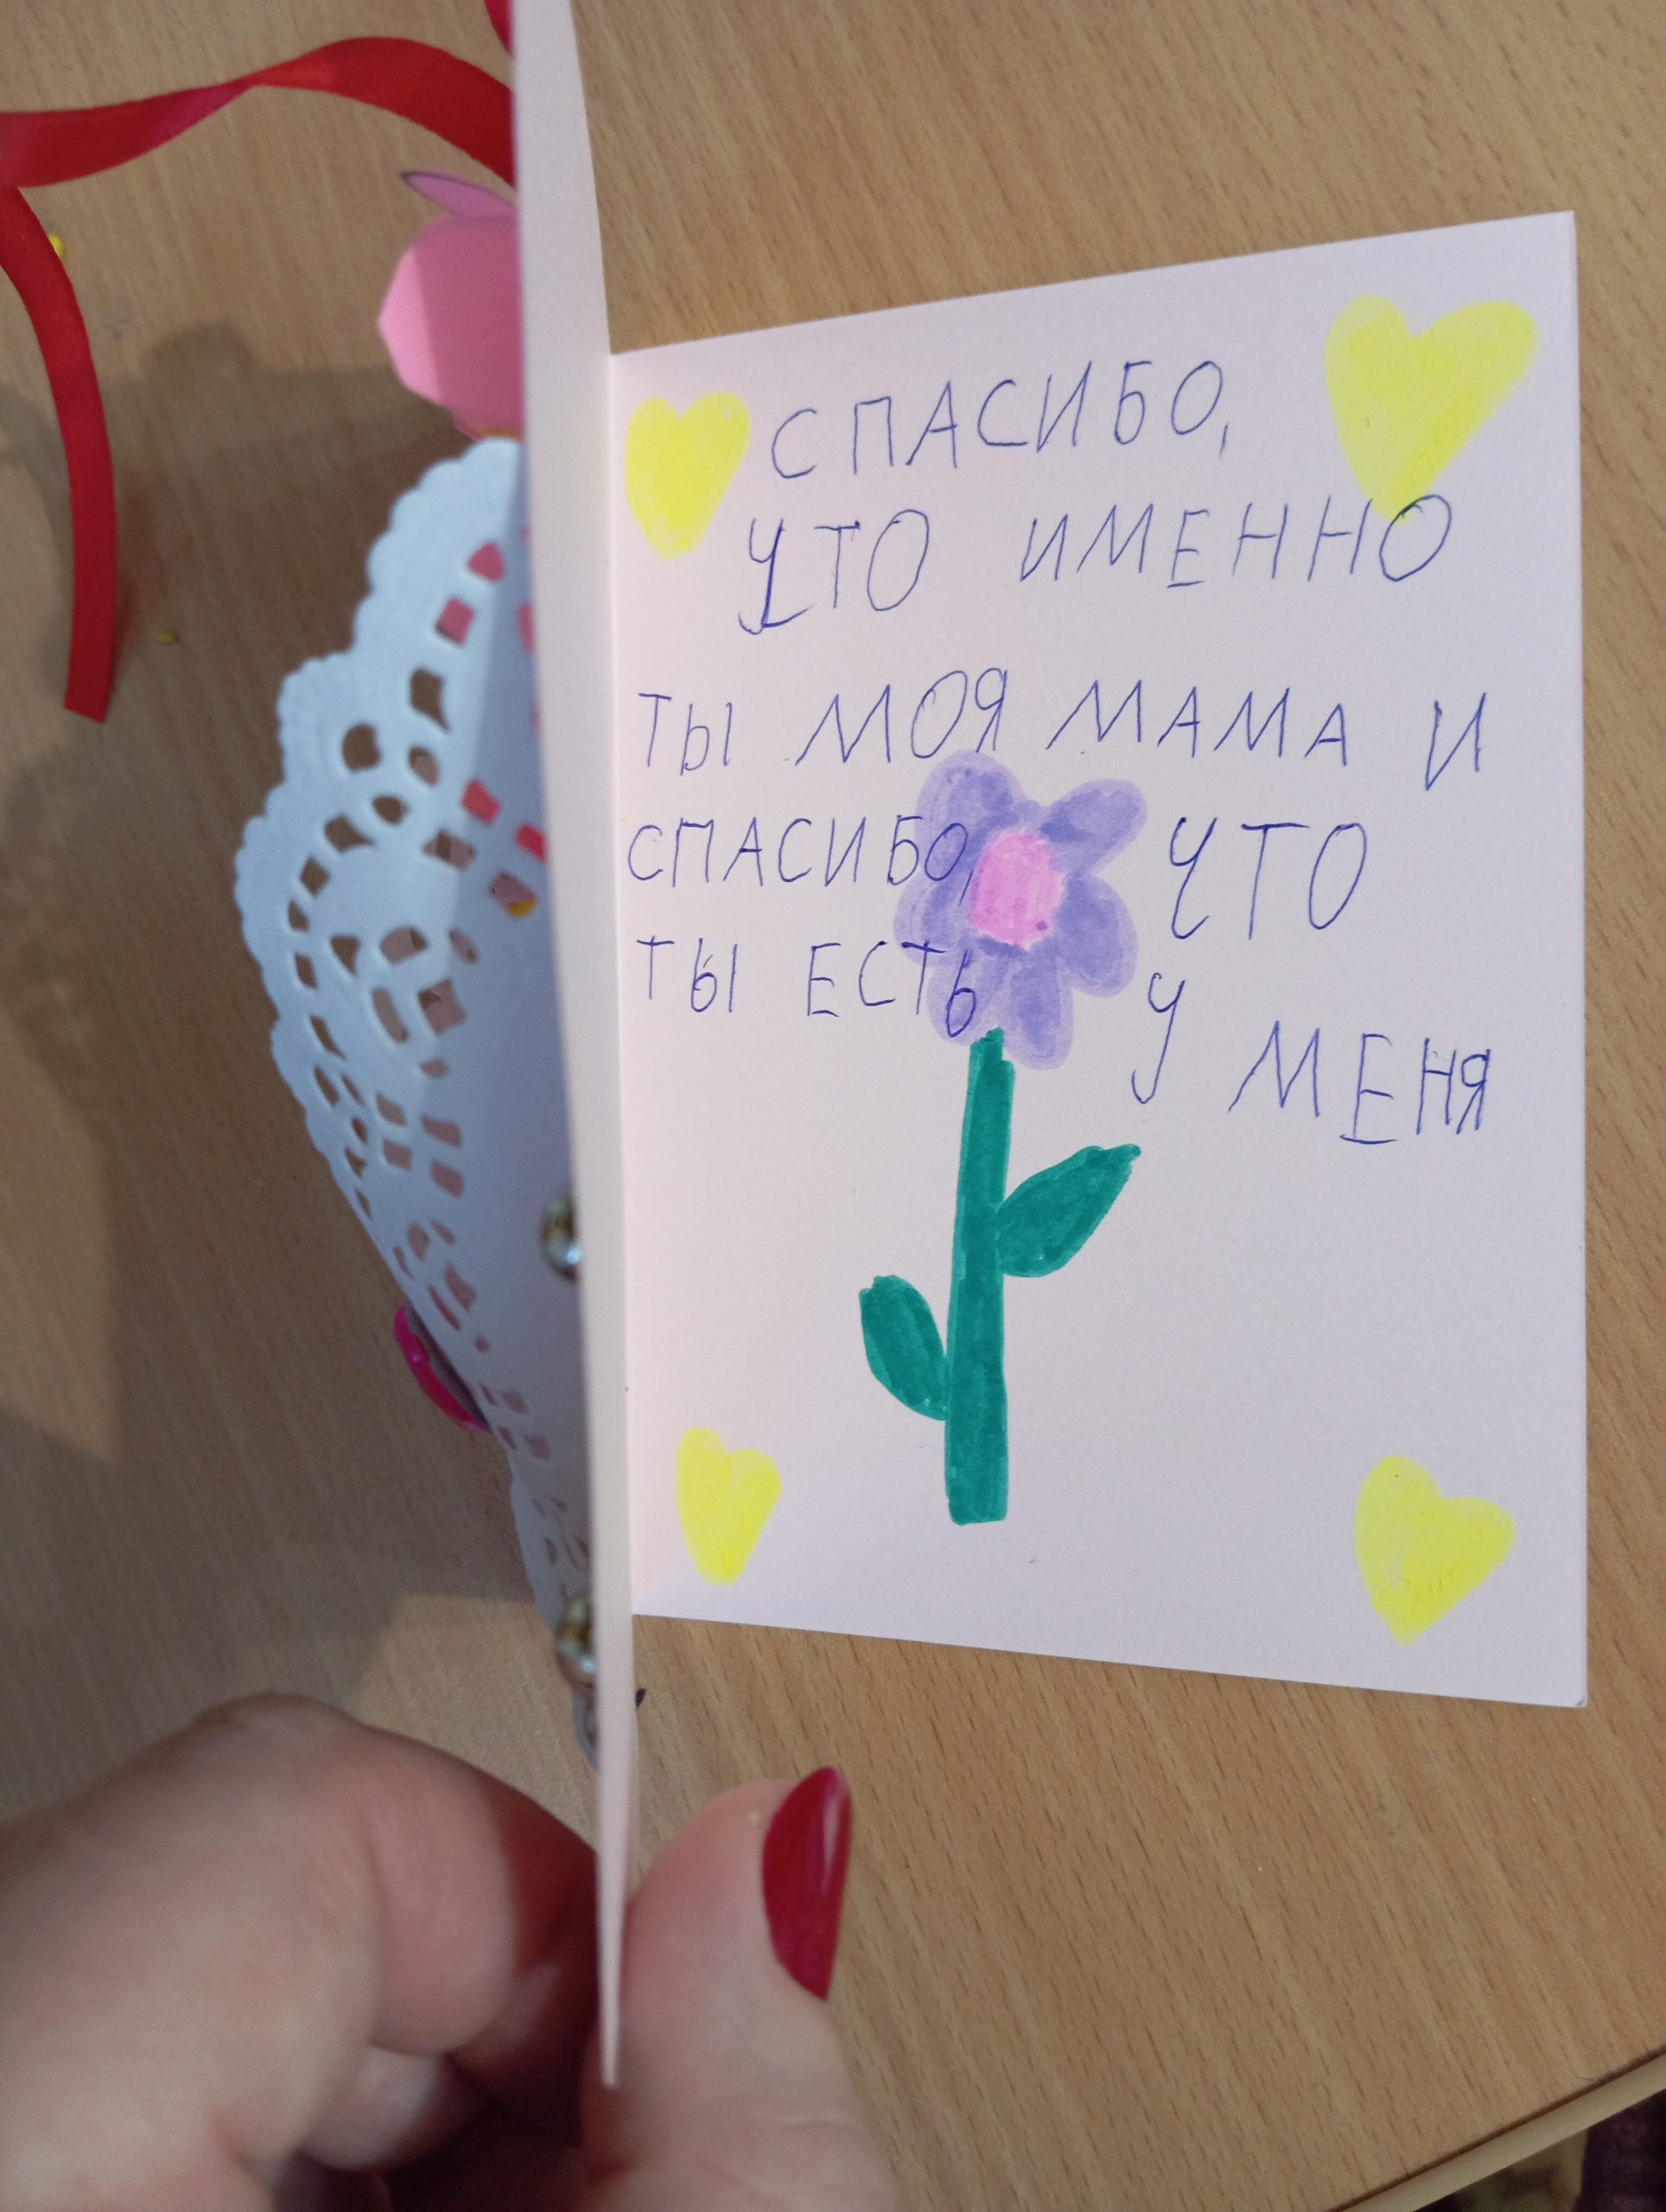 СПАСИБО,
ЧТО ИМЕННО
ТЫ МОЯ МАМА И
СПАСИБО, ЧТО
ТЫ ЕСТЬ У МЕНЯ